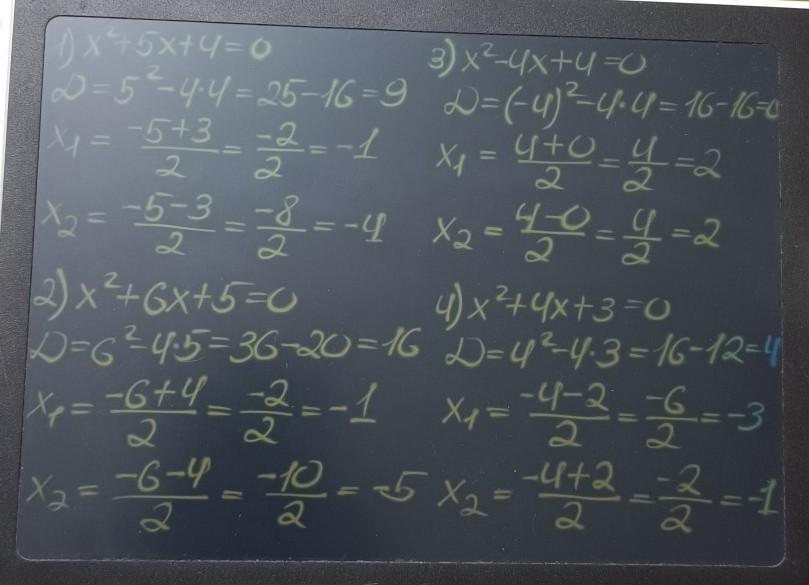 1) x²+5x+4=0
D=5²-4·4=25-16=9
x₁ = \frac{-5+3}{2} = \frac{-2}{2} = -1
x₂ = \frac{-5-3}{2} = \frac{-8}{2} = -4
2) x²+6x+5=0
D=6²-4·5=36-20=16
x₁ = \frac{-6+4}{2} = \frac{-2}{2} = -1
x₂ = \frac{-6-4}{2} = \frac{-10}{2} = -5
3) x²-4x+4=0
D=(-4)²-4·4=16-16=0
x₁ = \frac{4+0}{2} = \frac{4}{2} = 2
x₂ = \frac{4-0}{2} = \frac{4}{2} = 2
4) x²+4x+3=0
D=4²-4·3=16-12=4
x₁ = \frac{-4-2}{2} = \frac{-6}{2} = -3
x₂ = \frac{-4+2}{2} = \frac{-2}{2} = -1